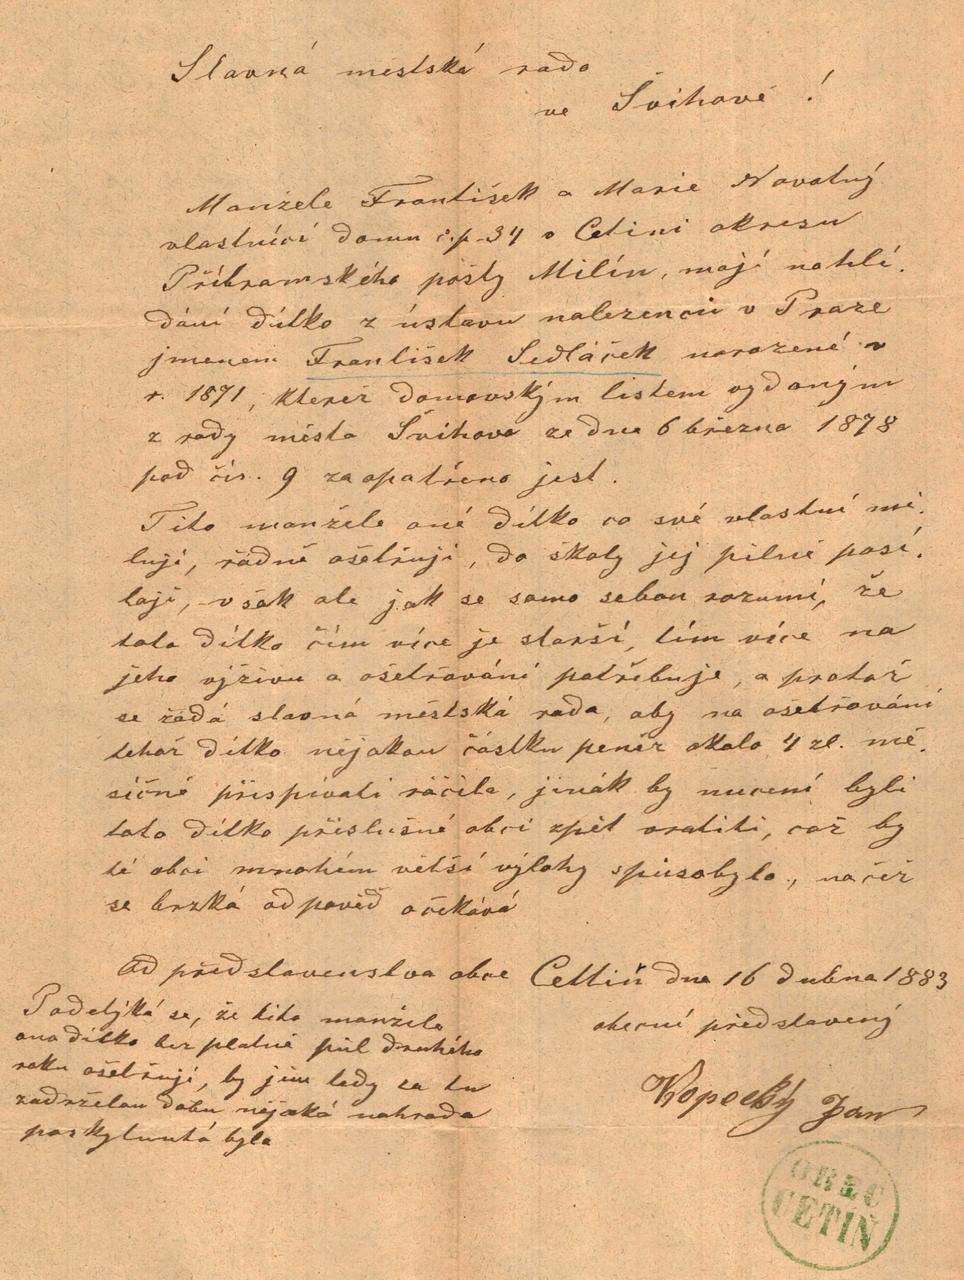 Slavná městská rado
ve Švihově !
Manžele František a Marie Novotný
vlastníci domu č.p. 34 v Cetini okresu
Příbramského pošty Milín, mají na hlí.
dání dítko z ústavu nalezenců v Praze
jmenem František Sedláček narozené v
r. 1871, kteréž domovským listem vydaným
z rady města Švihova ze dne 6 března 1878
pod čís. 9 zaopatřeno jest.
Tito manžele oné dítko co své vlastní mi.
lují, řádně ošetřují, do školy jej pilně posí.
lají, však ale jak se samo sebou rozumí, že
toto dítko čím více je starší, tím více na
jeho výživu a ošetřování potřebuje, a protož
se žádá slavná městská rada, aby na ošetřování
tehož dítko nějakou částku peněz okolo 4 zl. mě.
síčně přispívati ráčila, jinák by nuceni byli
toto dítko příslušné obci zpět vratiti, což by
té obci mnohém větší výlohy spůsobylo, načež
se brzká odpověď očekává
Od představenstva obce Cettiň dne 16 dubna 1883
Podotýká se, že tito manžele
ono dítko bez platně půl druhého
roku ošetřují, by jim tedy za tu
zadrželou dobu nějaká nahrada
poskytnutá byla
obecní představený
Kopecký Jan
OBEC
CETIŇ